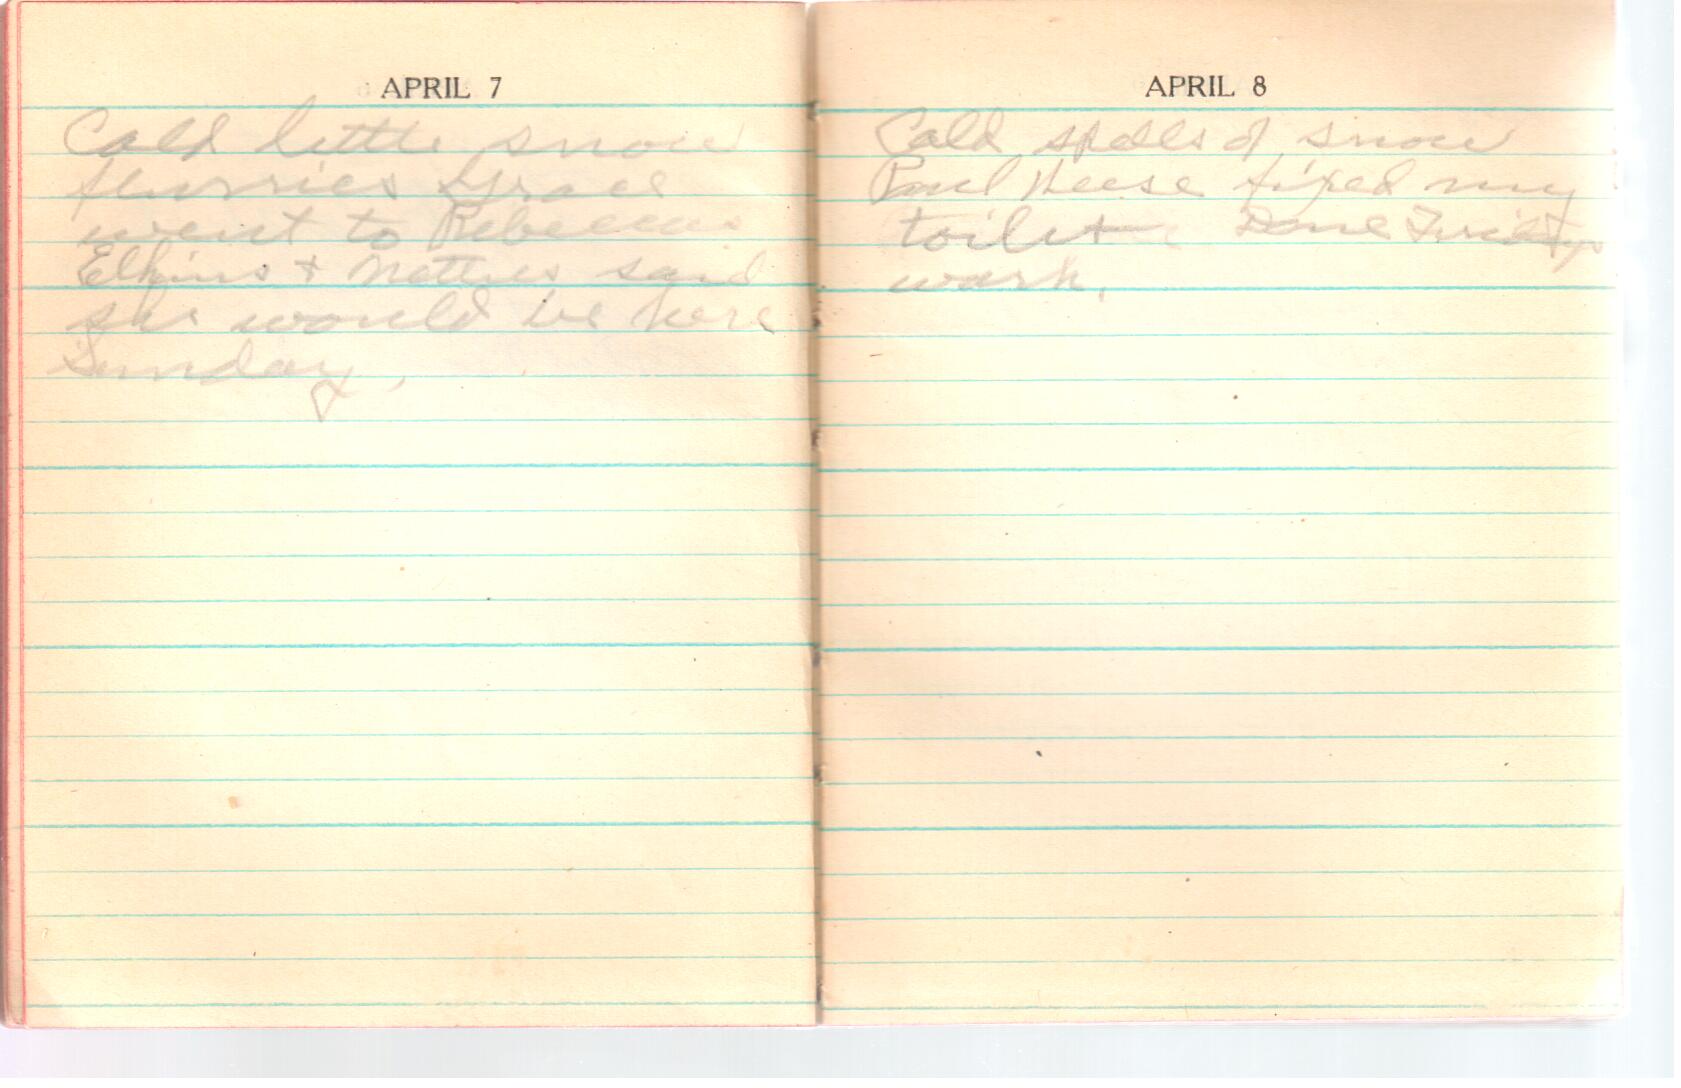 APRIL 7
Cold little snow
flurries Grace
went to Rebeccas
Elkins + Matties said
she would be here
Sunday.
APRIL 8
Cold spells of snow
Paul Neese fixed my
toilet Done Fridays
work.